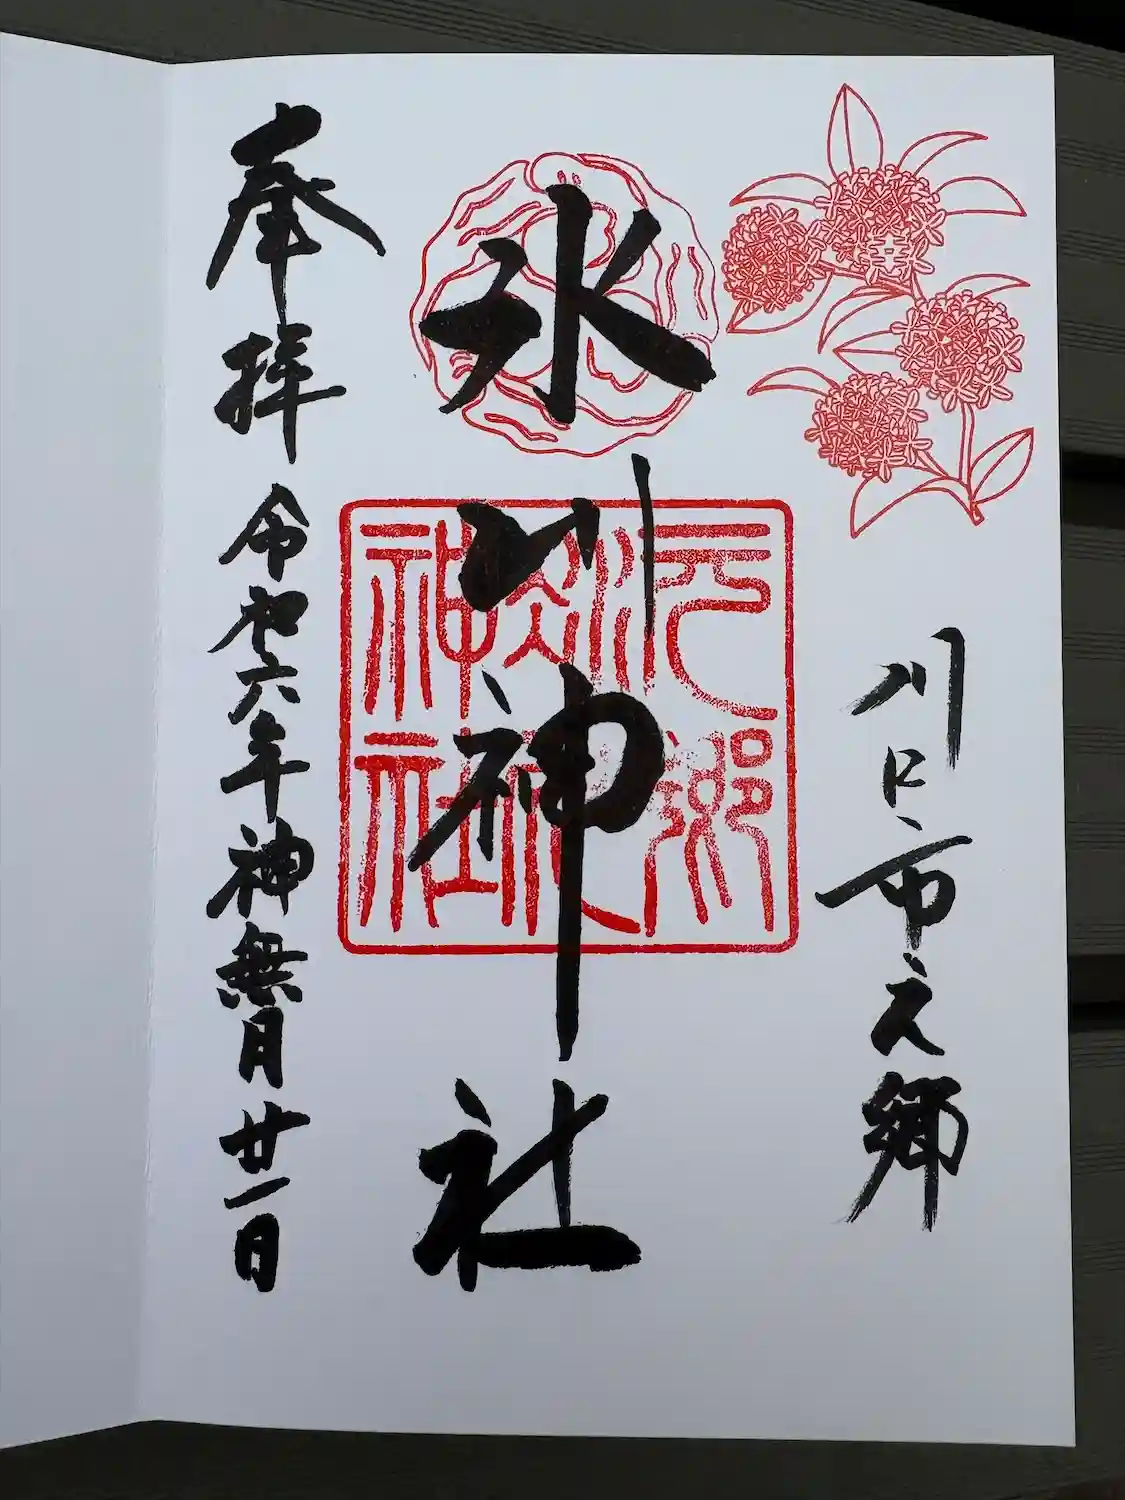 川口市元郷
幸
氷川神社
元郷
神社
奉拝
令和六年神無月廿一日